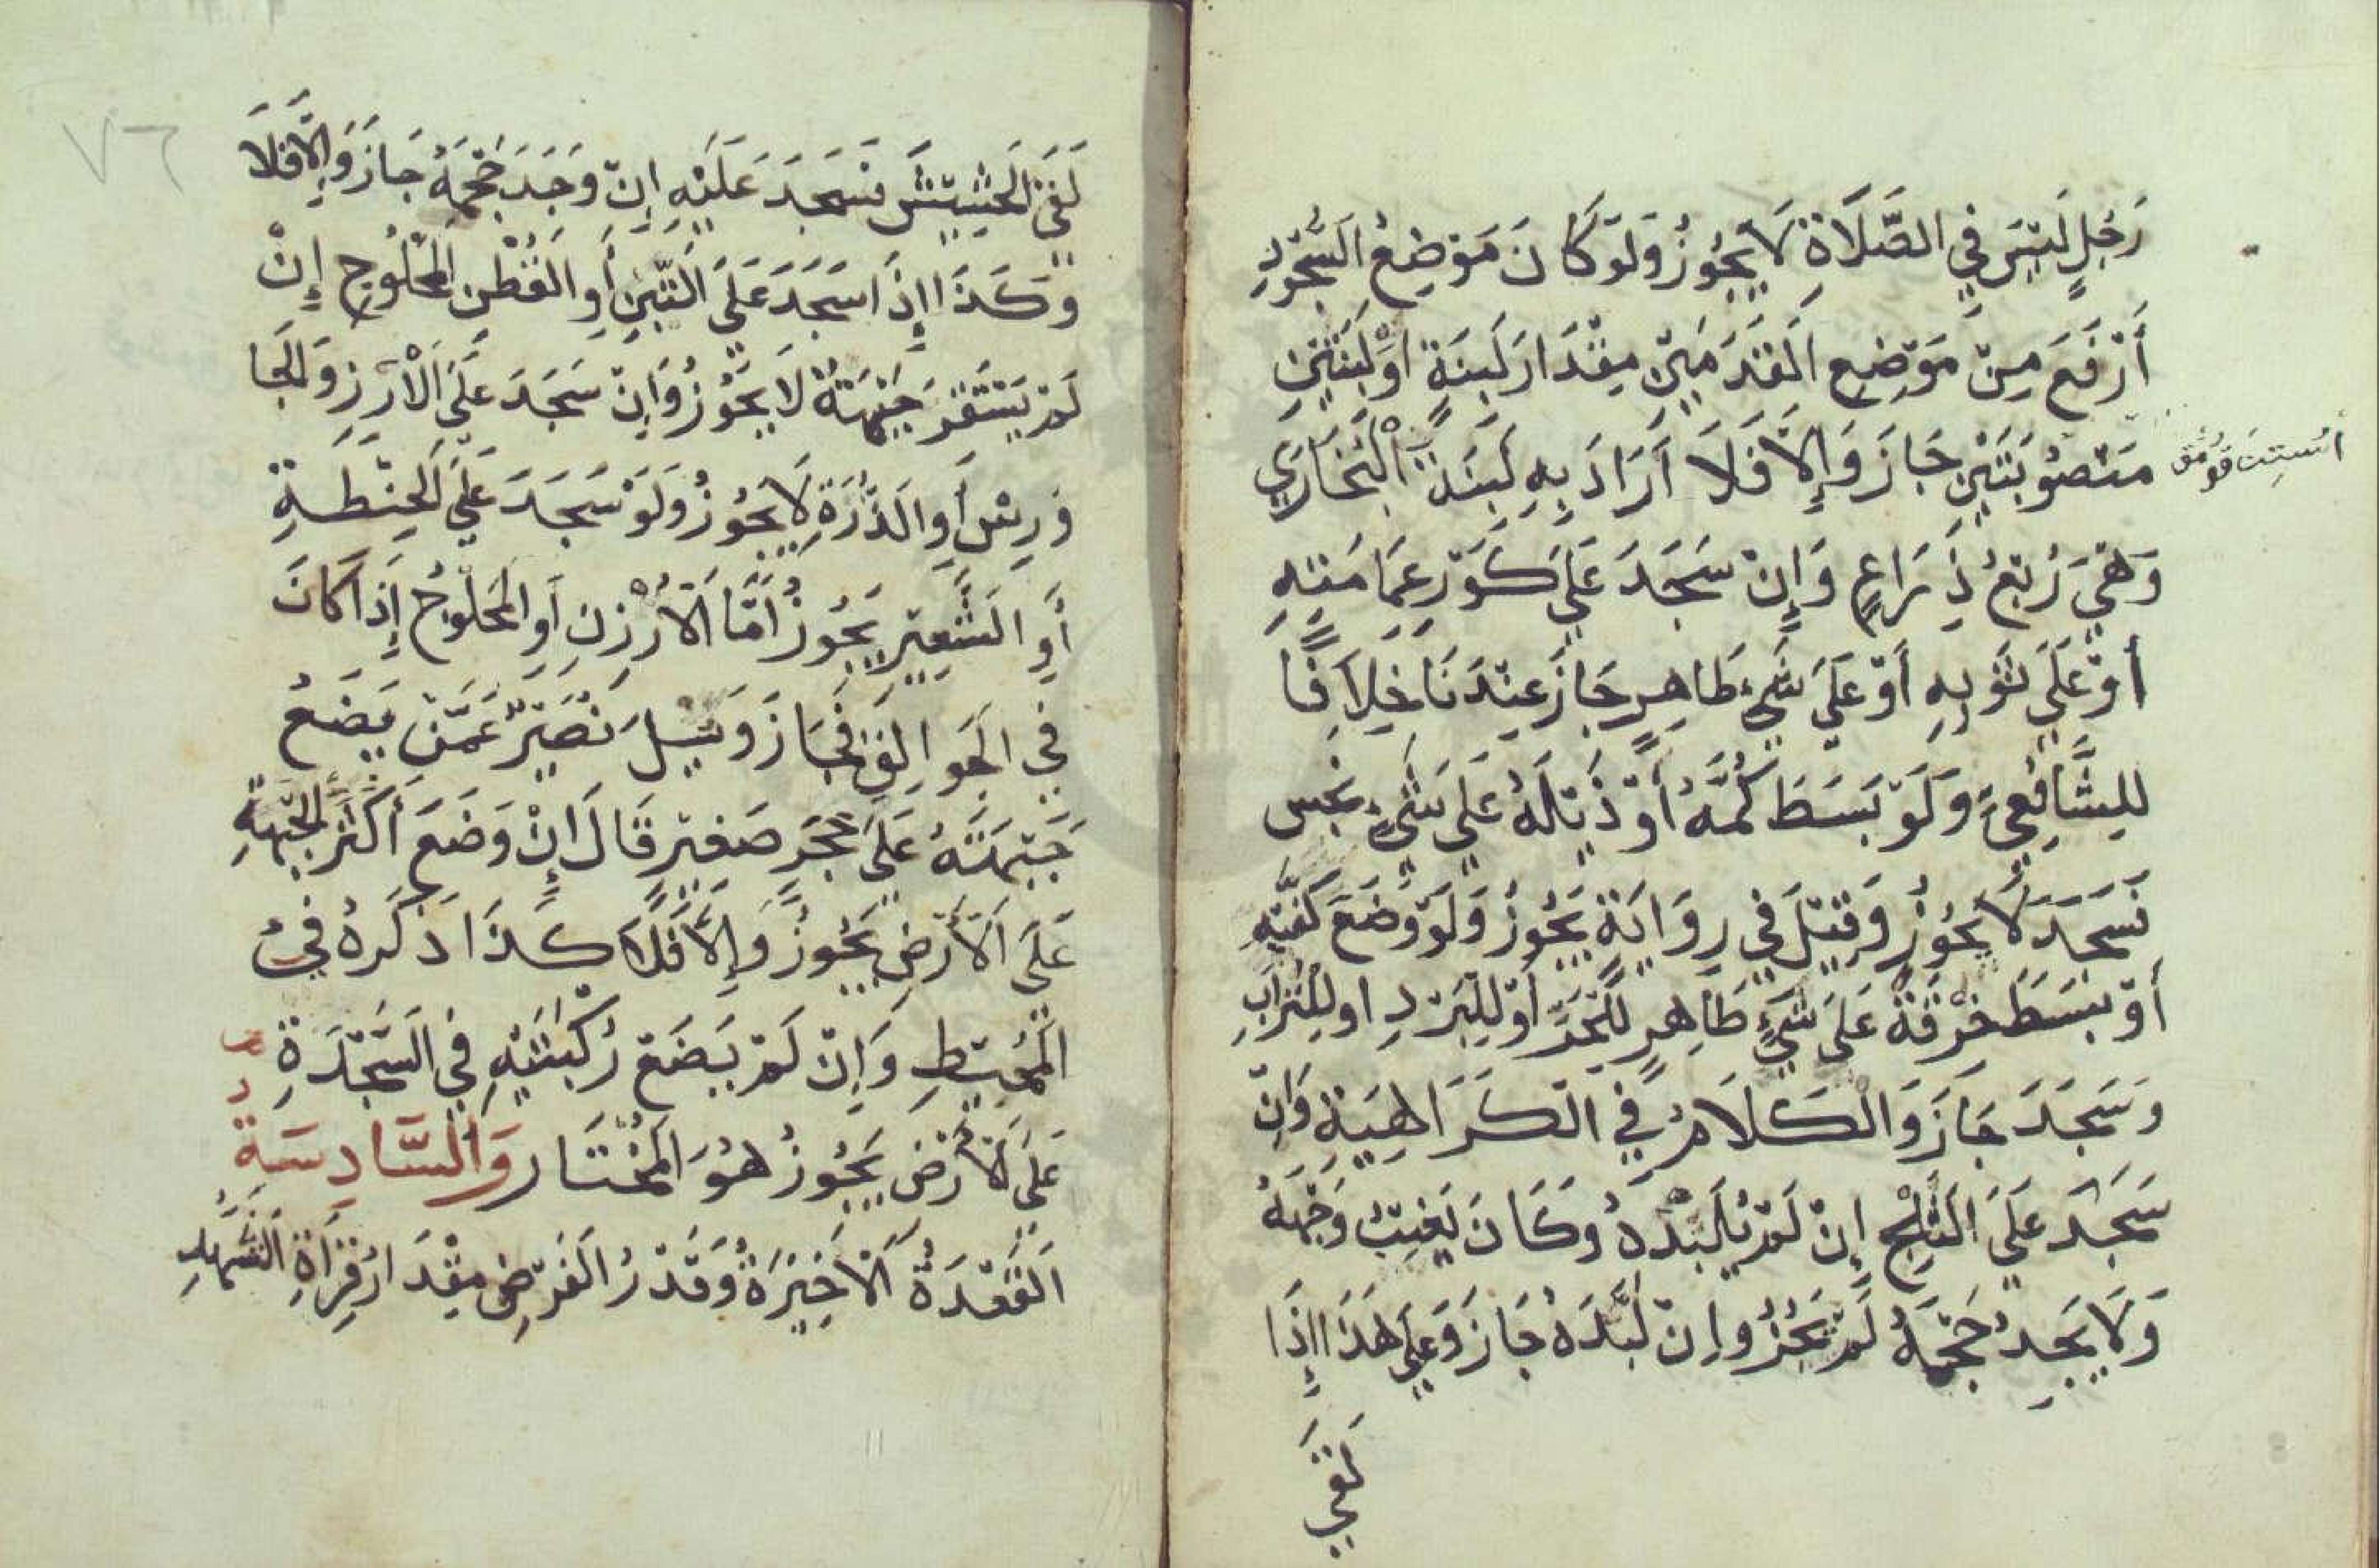 رَجُلٍ لَيْسَ فِي الصَّلَاةِ لَا يَجُوزُ وَلَوْ كَانَ مَوْضِعُ السُّجُودِ
أَرْفَعَ مِنْ مَوْضِعِ الْقَدَمَيْنِ مِقْدَارَ لَبِنَةٍ اَوْ لَبِنَتَيْنِ
مَنْصُوبَتَيْنِ جَازَ وَإِلَّا فَلَا اَرَادَ بِهِ لَبِنَةً الْبُخَارِي
وَهْيَ رُبْعُ ذِرَاعٍ وَإِنْ سَجَدَ عَلَى كَوْرِ عِمَامَتِهِ
أَوْ عَلَى ثَوْبِهِ أَوْ عَلَى شَيْءٍ طَاهِرٍ جَازَ عِنْدَنَا خِلَافًا
لِلشَّافِعِيِّ وَلَوْ بَسَطَ كُمَّهُ أَوْ ذَيْلَهُ عَلَى شَيْءٍ نَجِسٍ
فَسَجَدَ لَا يَجُوزُ وَقِيْلَ فِي رِوَايَةٍ يَجُوزُ وَلَوْ وَضَعَ كَفَّيْهِ
أَوْ بَسَطَ خِرْقَةً عَلَى شَيْءٍ طَاهِرٍ لِلْحَرِّ اَوْ لِلْبَرْدِ اوْ لِلتُّرَابِ
وَسَجَدَ جَازَ وَالْكَلَامُ فِي الْكَرَاهِيَةِ وَاِنْ
سَجَدَ عَلَى الثَّلْجِ إِنْ لَمْ يُلَبِّدْهُ وَكَانَ يَغِيبُ وَجْهُهُ
وَلَا يَجِدُ حَجْمَهُ لَمْ يَجُزْ وَاِنْ لَبَّدَهُ جَازَ وَعَلَى هَذَا اِذَا
لَقِيَ
لَقِيَ الْحَشِيشَ فَسَجَدَ عَلَيْهِ اِنْ وَجَدَ حَجْمَهُ جَازَ وَاِلَّا فَلَا
وَكَذَا اِذَا سَجَدَ عَلَى التِّبْنِ أَوِ الْقُطْنِ الْمَحْلُوجِ إِنْ
لَمْ يَسْتَقِرَّ جَبْهَتُهُ لَا يَجُوزُ وَاِنْ سَجَدَ عَلَى الْأُرْزِ وَالْجَا
وَرِسْ أَوِ الذُّرَةِ لَا يَجُوزُ وَلَوْ سَجَدَ عَلَى الْحِنْطَةِ
أَوِ الشَّعِيرِ يَجُوزُ أَمَّا الْأُرْزُنِ أَوِ الْمَحْلُوجُ إِذَا كَانَ
فِي الْجَوَالِقِ فَجَازَ وَسُئِلَ نُصَيْرٌ عَمَّنْ يَضَعُ
جَبْهَتَهُ عَلَى حَجَرٍ صَغِيرٍ قَالَ إِنْ وَضَعَ أَكْثَرَ الْجَبْهَةِ
عَلَى الْأَرْضِ يَجُوزُ وَإِلَّا فَلَا كَذَا ذَكَرَهُ فِي
الْمُحِيطِ وَاِنْ لَمْ يَضَعْ رُكْبَتَيْهِ فِي السَّجْدَةِ
عَلَى الْأَرْضِ يَجُوزُ هُوَ الْمُخْتَار وَالسَّادِسَةِ
الْقَعْدَةُ الْأَخِيرَةُ وَقَدْرُ الْفَرْضِ مِقْدَارُ قِرَاَةِ التَّشَهُّدِ
٧٦